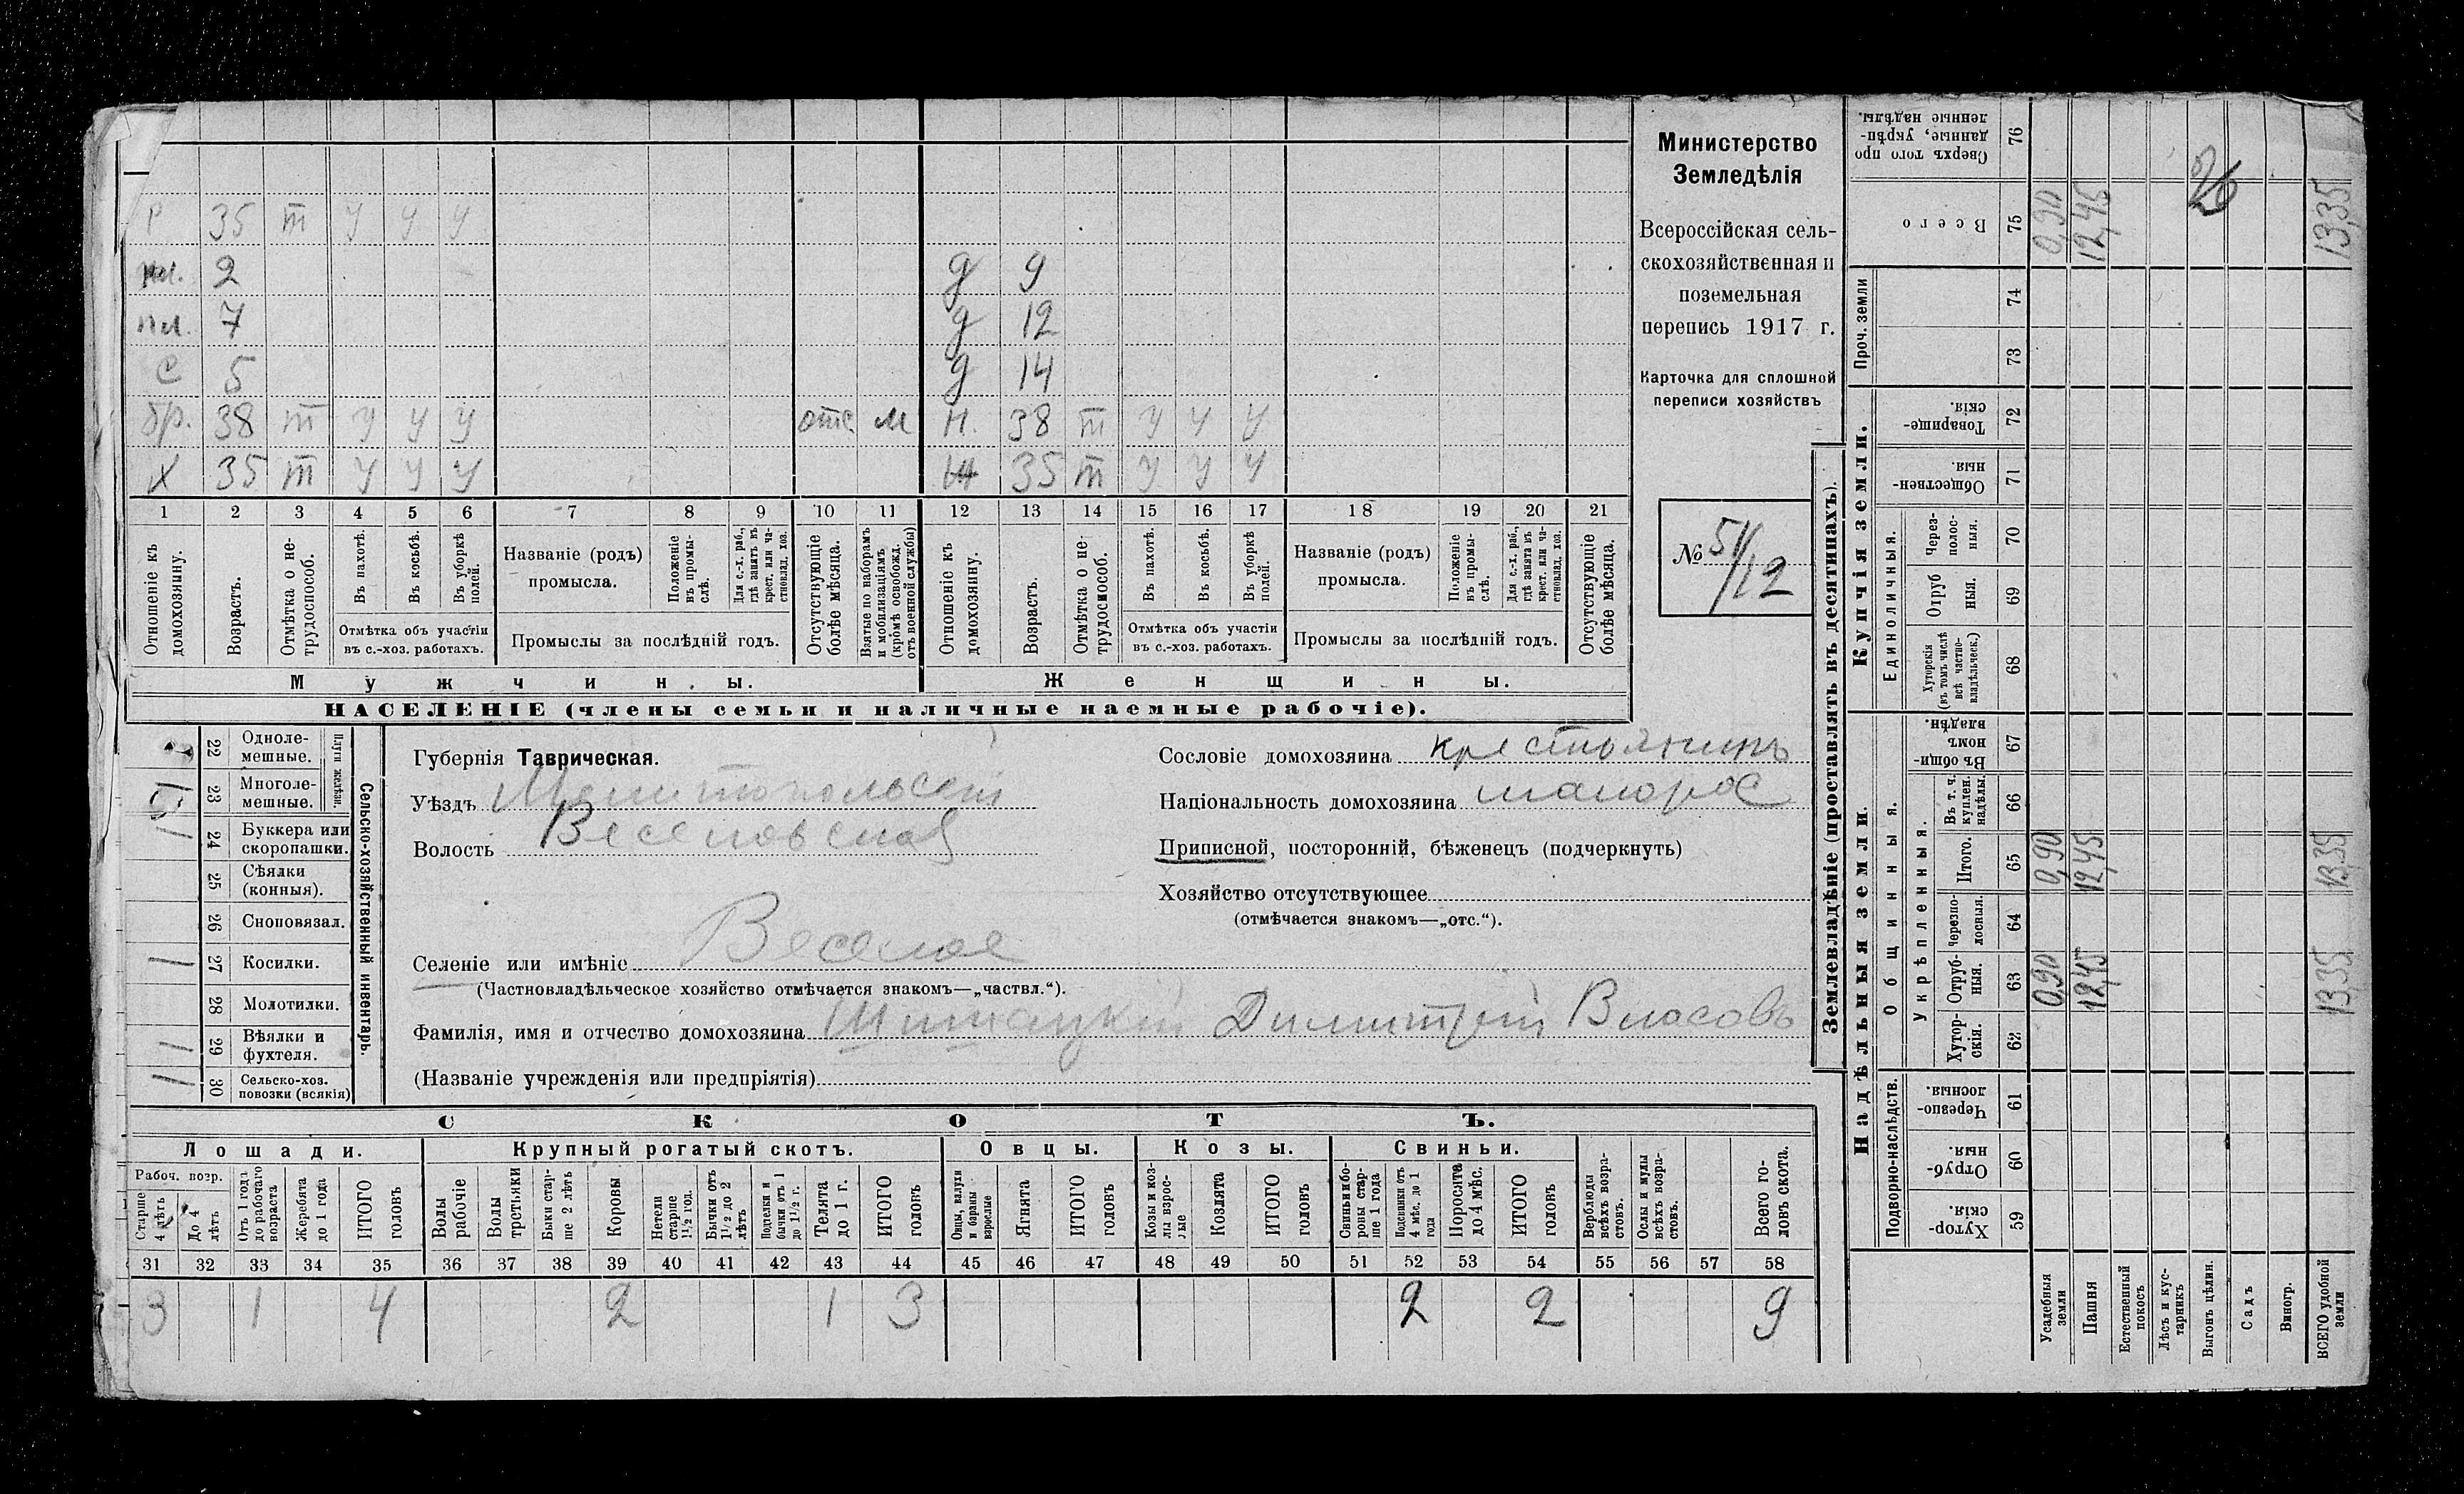 Министерство
Земледѣлія
Всероссійская сель-
скохозяйственная и
поземельная
перепись 1917 г.
Карточка для сплошной
переписи хозяйствъ
№ 51/12
Р 35 т у у у
пл. 2 д 9
пл. 7 д 12
С 5 д 14
бр. 38 т у у у отс м н. 38 т у у у
Х 35 т у у у Ж 35 т у у у
1 2 3 4 5 6 7 8 9 10 11 12 13 14 15 16 17 18 19 20 21
Отношеніе къ домохозяину.
Возрастъ.
Отмѣтка о не-трудоспособ.
Въ пахотѣ.
Въ косьбѣ.
Въ уборкѣ полей.
Отмѣтка объ участіи
въ с.-хоз. работахъ.
Названіе (родъ)
промысла.
Положеніе въ промы-слѣ.
Для с.-х. раб., гдѣ занятъ въ крест. или ча-стновлад. хоз.
Промыслы за послѣдній годъ.
Отсутствующіе болѣе мѣсяца.
Взятые по наборамъ и мобилизаціямъ (кромѣ освобожд. отъ военной службы)
Отношеніе къ домохозяину.
Возрастъ.
Отмѣтка о не-трудоспособ.
Въ пахотѣ.
Въ косьбѣ.
Въ уборкѣ полей.
Отмѣтка объ участіи
въ с.-хоз. работахъ.
Названіе (родъ)
промысла.
Положеніе въ промы-слѣ.
Для с.-х. раб., гдѣ занята въ крест. или ча-стновлад. хоз.
Промыслы за послѣдній годъ.
Отсутствующіе болѣе мѣсяца.
Мужчины.
Женщины.
НАСЕЛЕНІЕ (члены семьи и наличные наемные рабочіе).
Сельско-хозяйственный инвентарь.
Плуги желѣзн.
22 Одноле-мешные.
23 Многоле-мешные.
1 24 Буккера или скоропашки.
25 Сѣялки (конныя).
26 Сноповязал.
1 27 Косилки.
28 Молотилки.
1 29 Вѣялки и фухтеля.
30 Сельско-хоз. повозки (всякія)
Губернія Таврическая.
Уѣздъ Мелитопольскій
Волость Веселовская
Селеніе или имѣніе Веселое
(Частновладѣльческое хозяйство отмѣчается знакомъ—„частвл.“).
Фамилія, имя и отчество домохозяина Димитрій Власовъ
(Названіе учрежденія или предпріятія)
Сословіе домохозяина крестьянинъ
Національность домохозяина малорос
Приписной, посторонній, бѣженецъ (подчеркнуть)
Хозяйство отсутствующее
(отмѣчается знакомъ—„отс.“).
СКОТЪ.
Лошади.
Крупный рогатый скотъ.
Овцы.
Козы.
Свиньи.
Рабоч. возр.
Старше 4 лѣтъ
До 4 лѣтъ
Отъ 1 года до рабочаго возраста
Жеребята до 1 года
ИТОГО головъ
Волы рабочіе
Волы третьяки
Быки стар-ше 2 лѣтъ
Коровы
Нетели старше 1½ год.
Бычки отъ 1½ до 2 лѣтъ
Подтелки и бычки отъ 1 до 1½ г.
Телята до 1 г.
ИТОГО головъ
Овцы, валухи и бараны взрослые
Ягнята
ИТОГО головъ
Козы и коз-лы взрос-лые
Козлята
ИТОГО головъ
Свиньи и бо-ровы стар-ше 1 года
Подсвинки отъ 4 мѣс. до 1 года
Поросята до 4 мѣс.
ИТОГО головъ
Верблюды всѣхъ возра-стовъ.
Ослы и мулы всѣхъ возра-стовъ.
Всего го-ловъ скота.
31 32 33 34 35 36 37 38 39 40 41 42 43 44 45 46 47 48 49 50 51 52 53 54 55 56 57 58
3 1 4 2 1 3 2 2 9
Землевладѣніе (проставлять въ десятинахъ).
Надѣльныя земли.
Купчія земли.
Проч. земли
Подворно-наслѣдств.
Общинныя.
Укрѣпленныя.
Единоличныя.
Хутор-скія. 59
Отруб-ныя. 60
Черезпо-лосныя. 61
Хутор-скія. 62
Отруб-ныя. 63
Черезпо-лосныя. 64
Итого. 65
Въ т. ч. куплен. надѣлы. 66
Въ общи-номъ владѣн. 67
Хуторскія (въ томъ числѣ всѣ частно-владѣльческ.) 68
Отруб ныя. 69
Через-полос-ныя. 70
Обществен-ныя. 71
Товарище-скія. 72
73
74
Всего 75
Сверхъ того про данные, укрѣп-ленные надѣлы. 76
Усадебныя земли 0,90 0,90 0,90
Пашня 12,45 12,45 12,45
Естественный покосъ
Лѣсъ и кус-тарникъ
Выгонъ цѣлин.
Садъ
Виногр.
ВСЕГО удобной земли 13,35 13,35 13,35
26